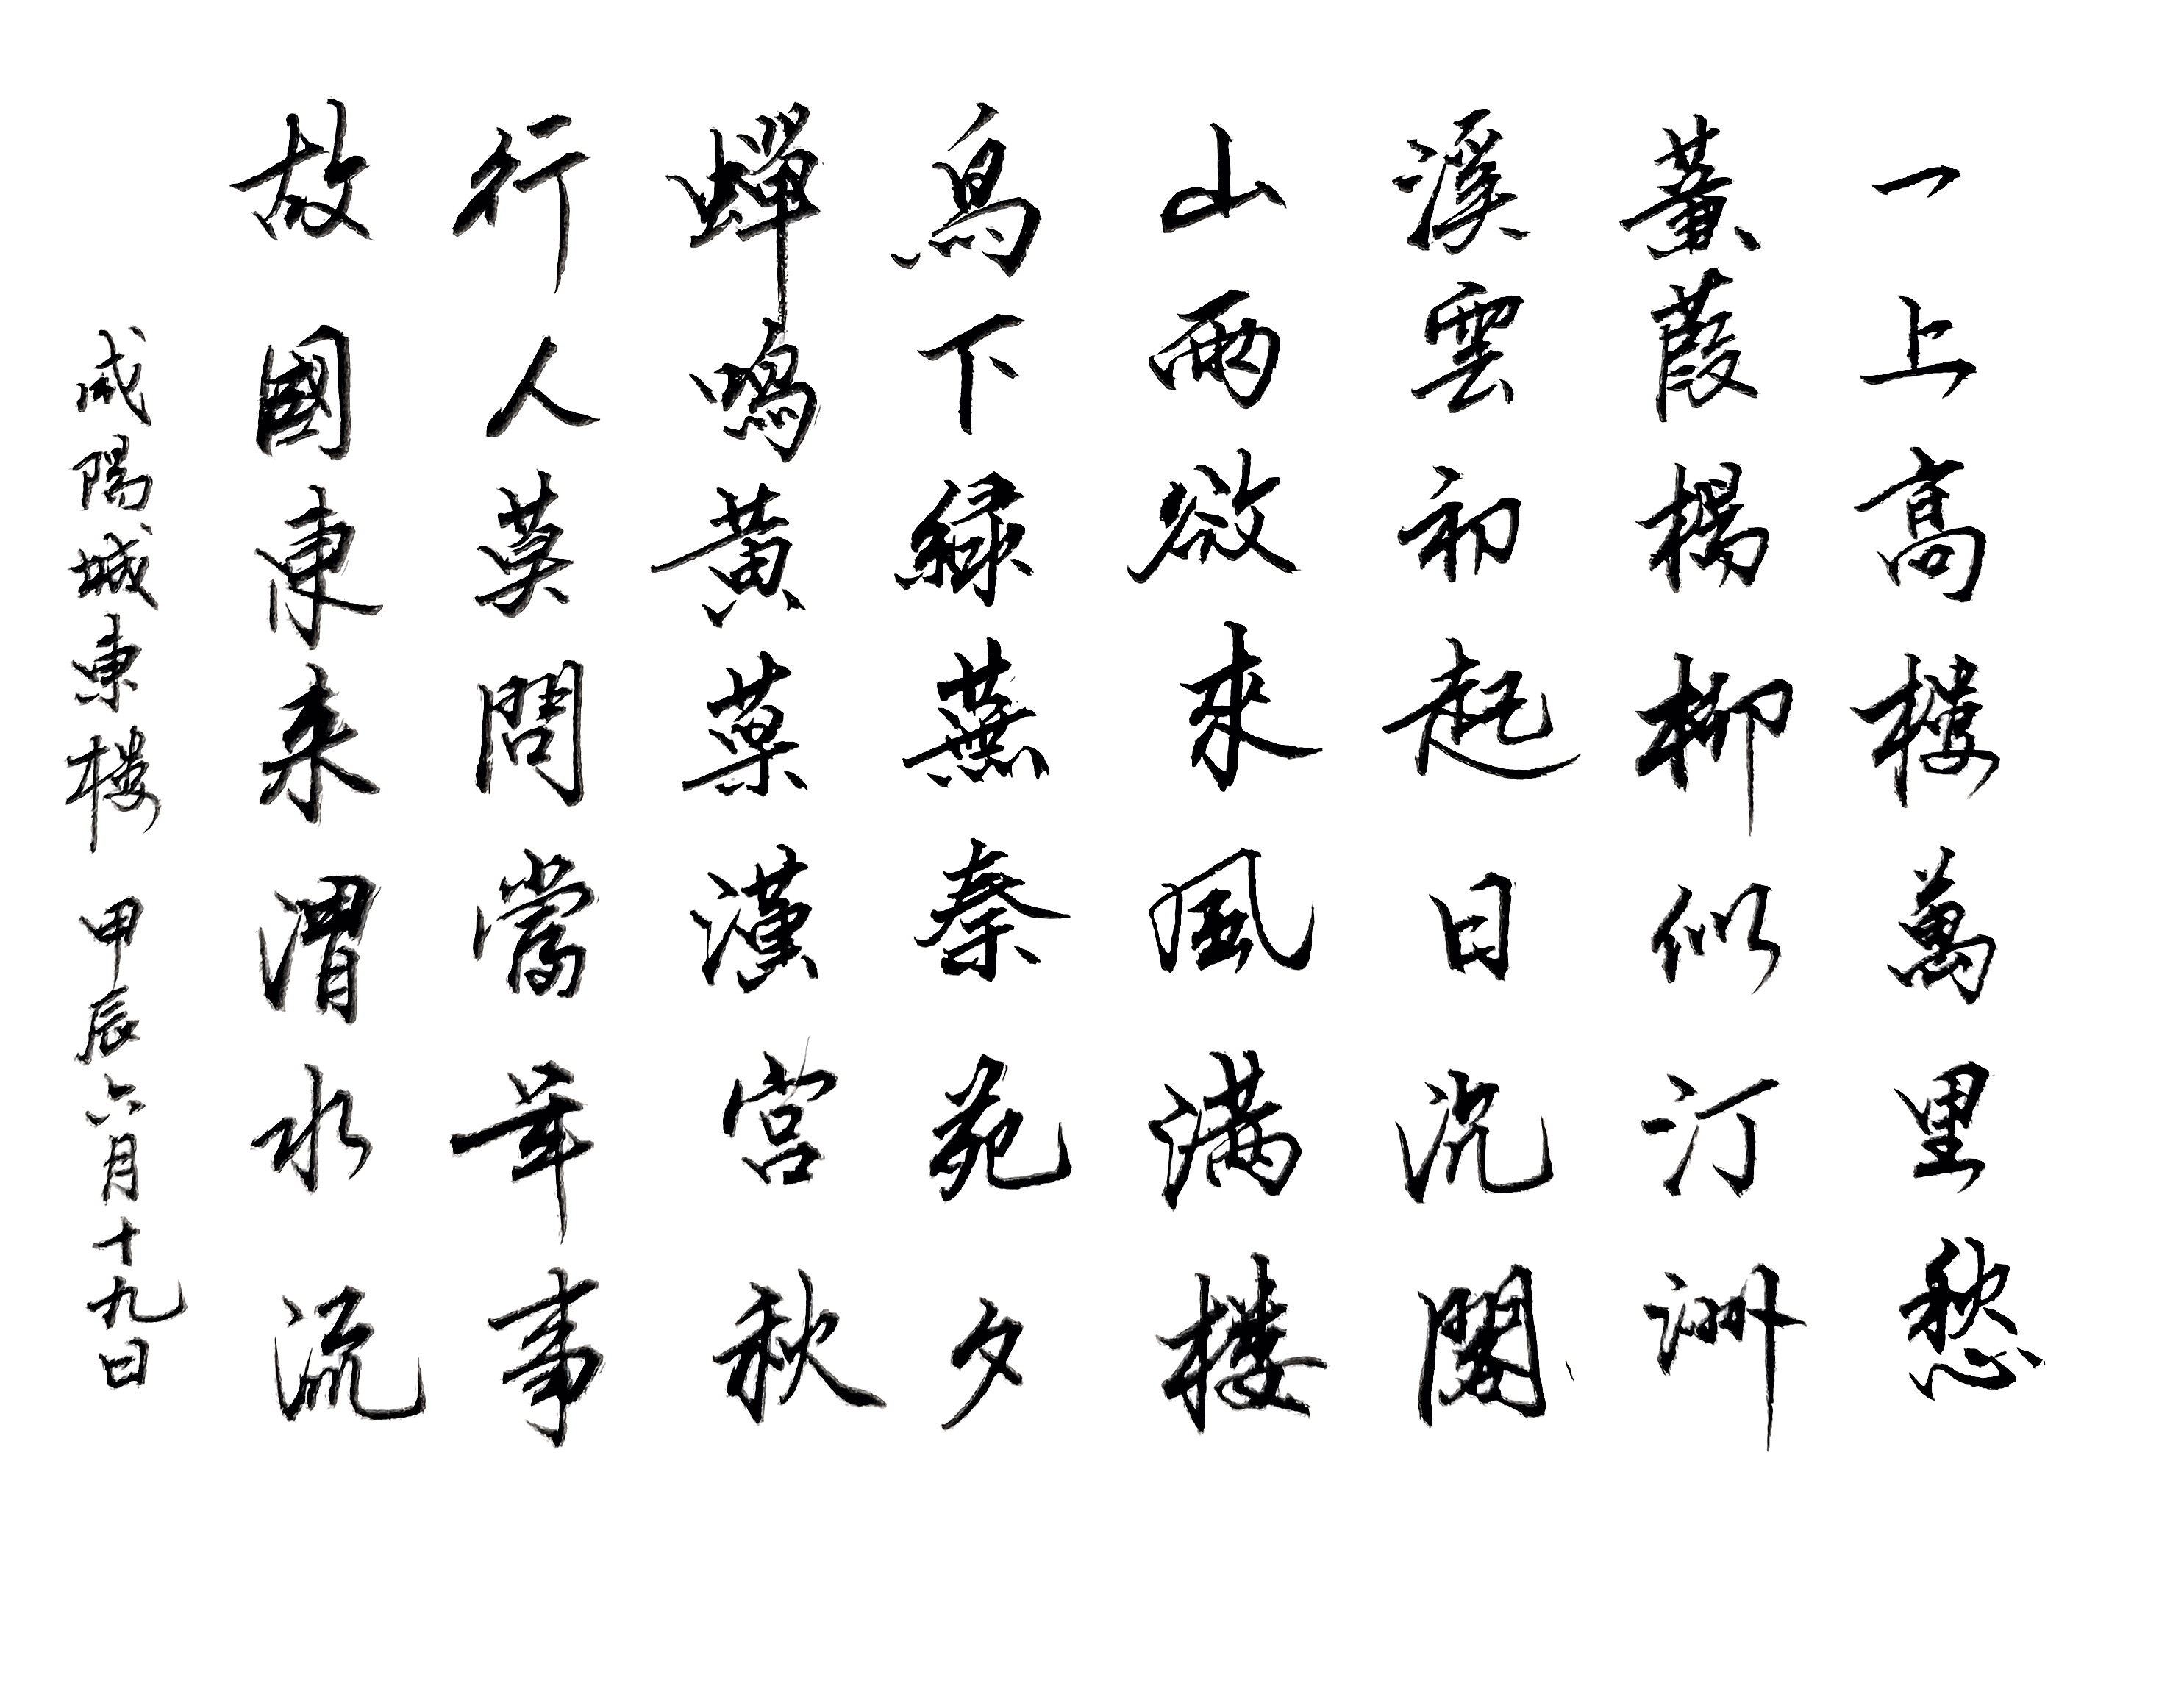 一上高樓萬里愁
蒹葭楊柳似汀洲
溪雲初起日沉閣
山雨欲來風滿樓
鳥下綠蕪秦苑夕
蟬鳴黃葉漢宮秋
行人莫問當年事
故國東来渭水流
咸陽城東樓 甲辰六月十九日